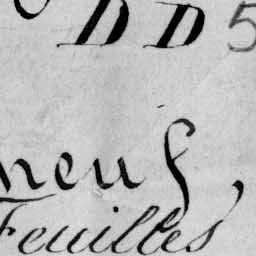 DD5
neuf,
Feuilles